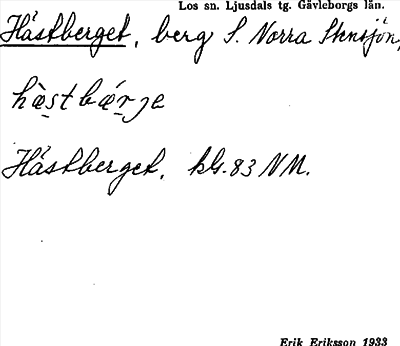 Los sn. Ljusdals tg. Gävleborgs län.
Hästberget, berg S. Norra Stensjön,
hæ̀stbǽrje
Hästberget, kbl. 83 NM.
Erik Eriksson 1933